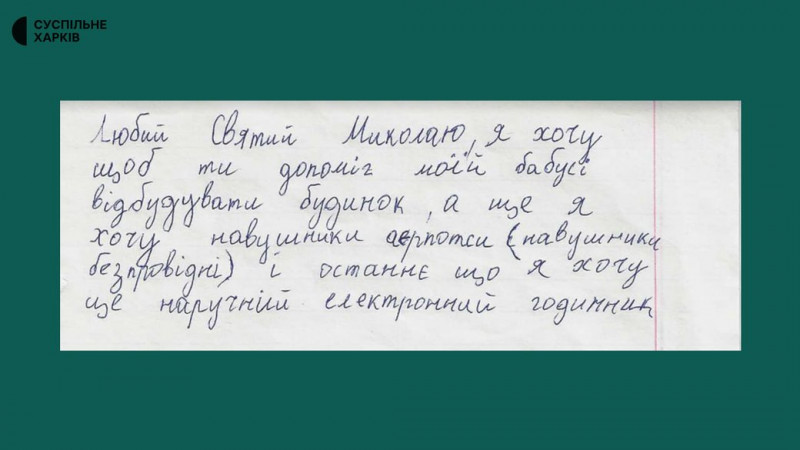 СУСПІЛЬНЕ
ХАРКІВ
Любий Святий Миколаю, я хочу
щоб ти допоміг моїй бабусі
відбудувати будинок, а ще я
хочу навушники аерпотси (навушники
безпровідні) і останнє що я хочу
це наручній електронний годинник